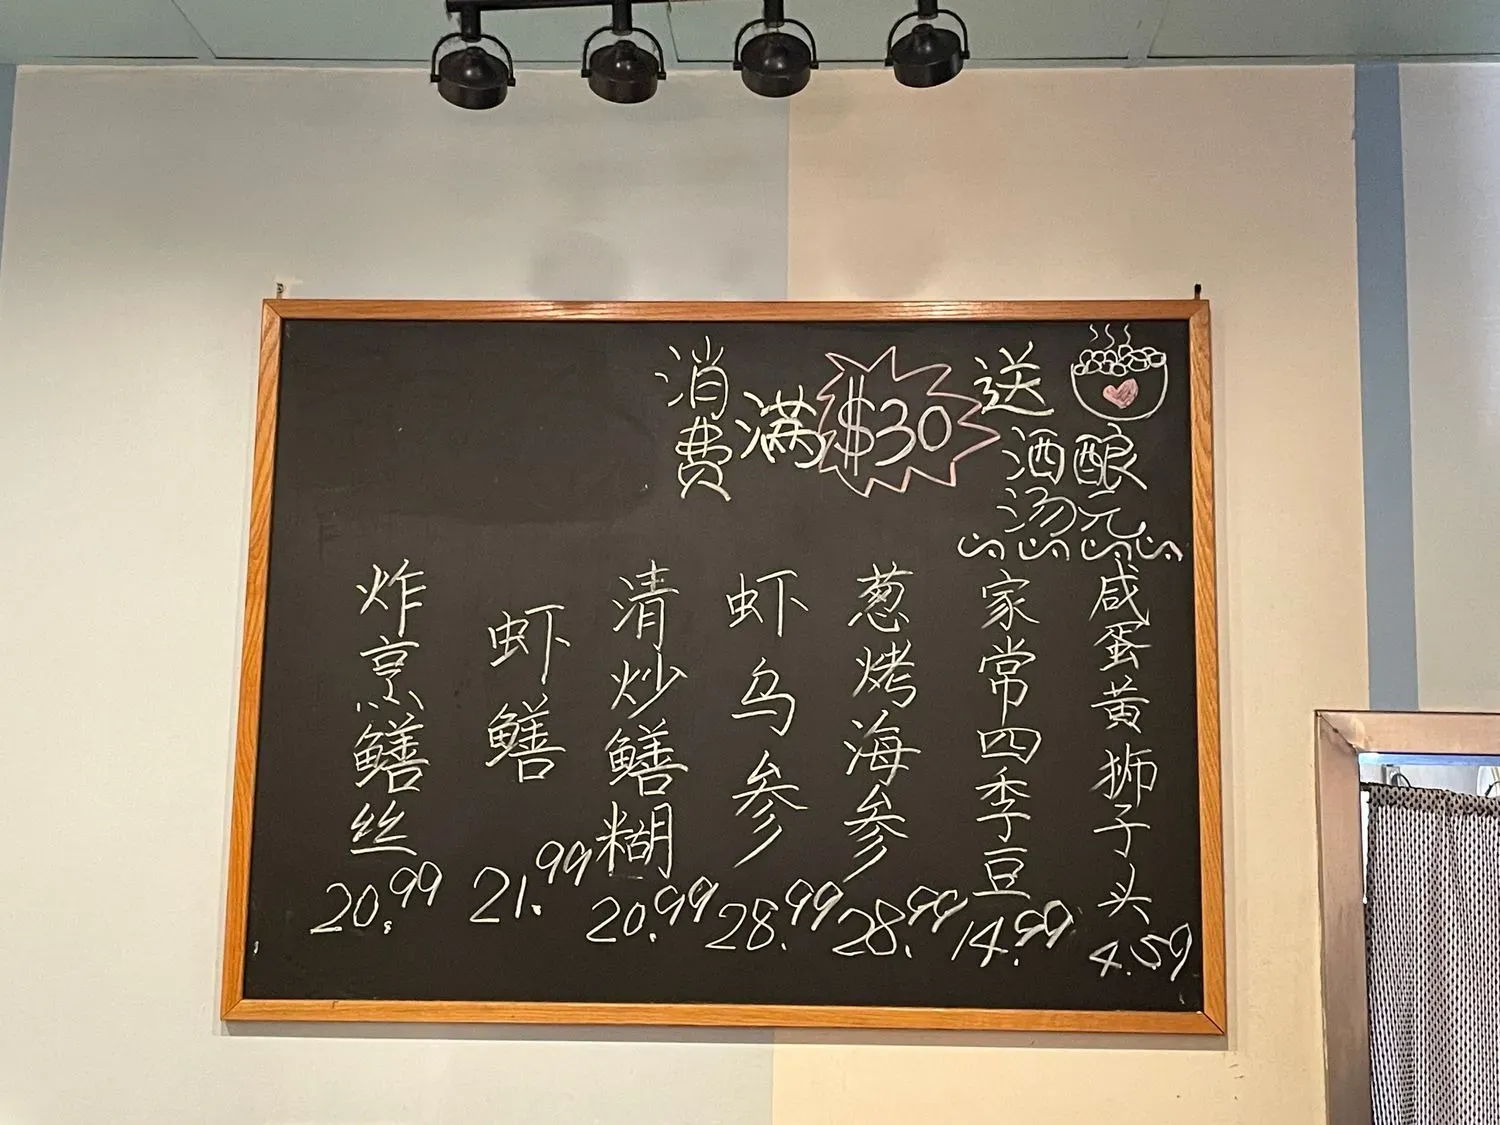 消费满$30送
酒酿
汤元
咸蛋黄狮子头
4.59
家常四季豆
14.99
葱烤海参
28.99
虾乌参
28.99
清炒鳝糊
20.99
虾鳝
21.99
炸烹鳝丝
20.99